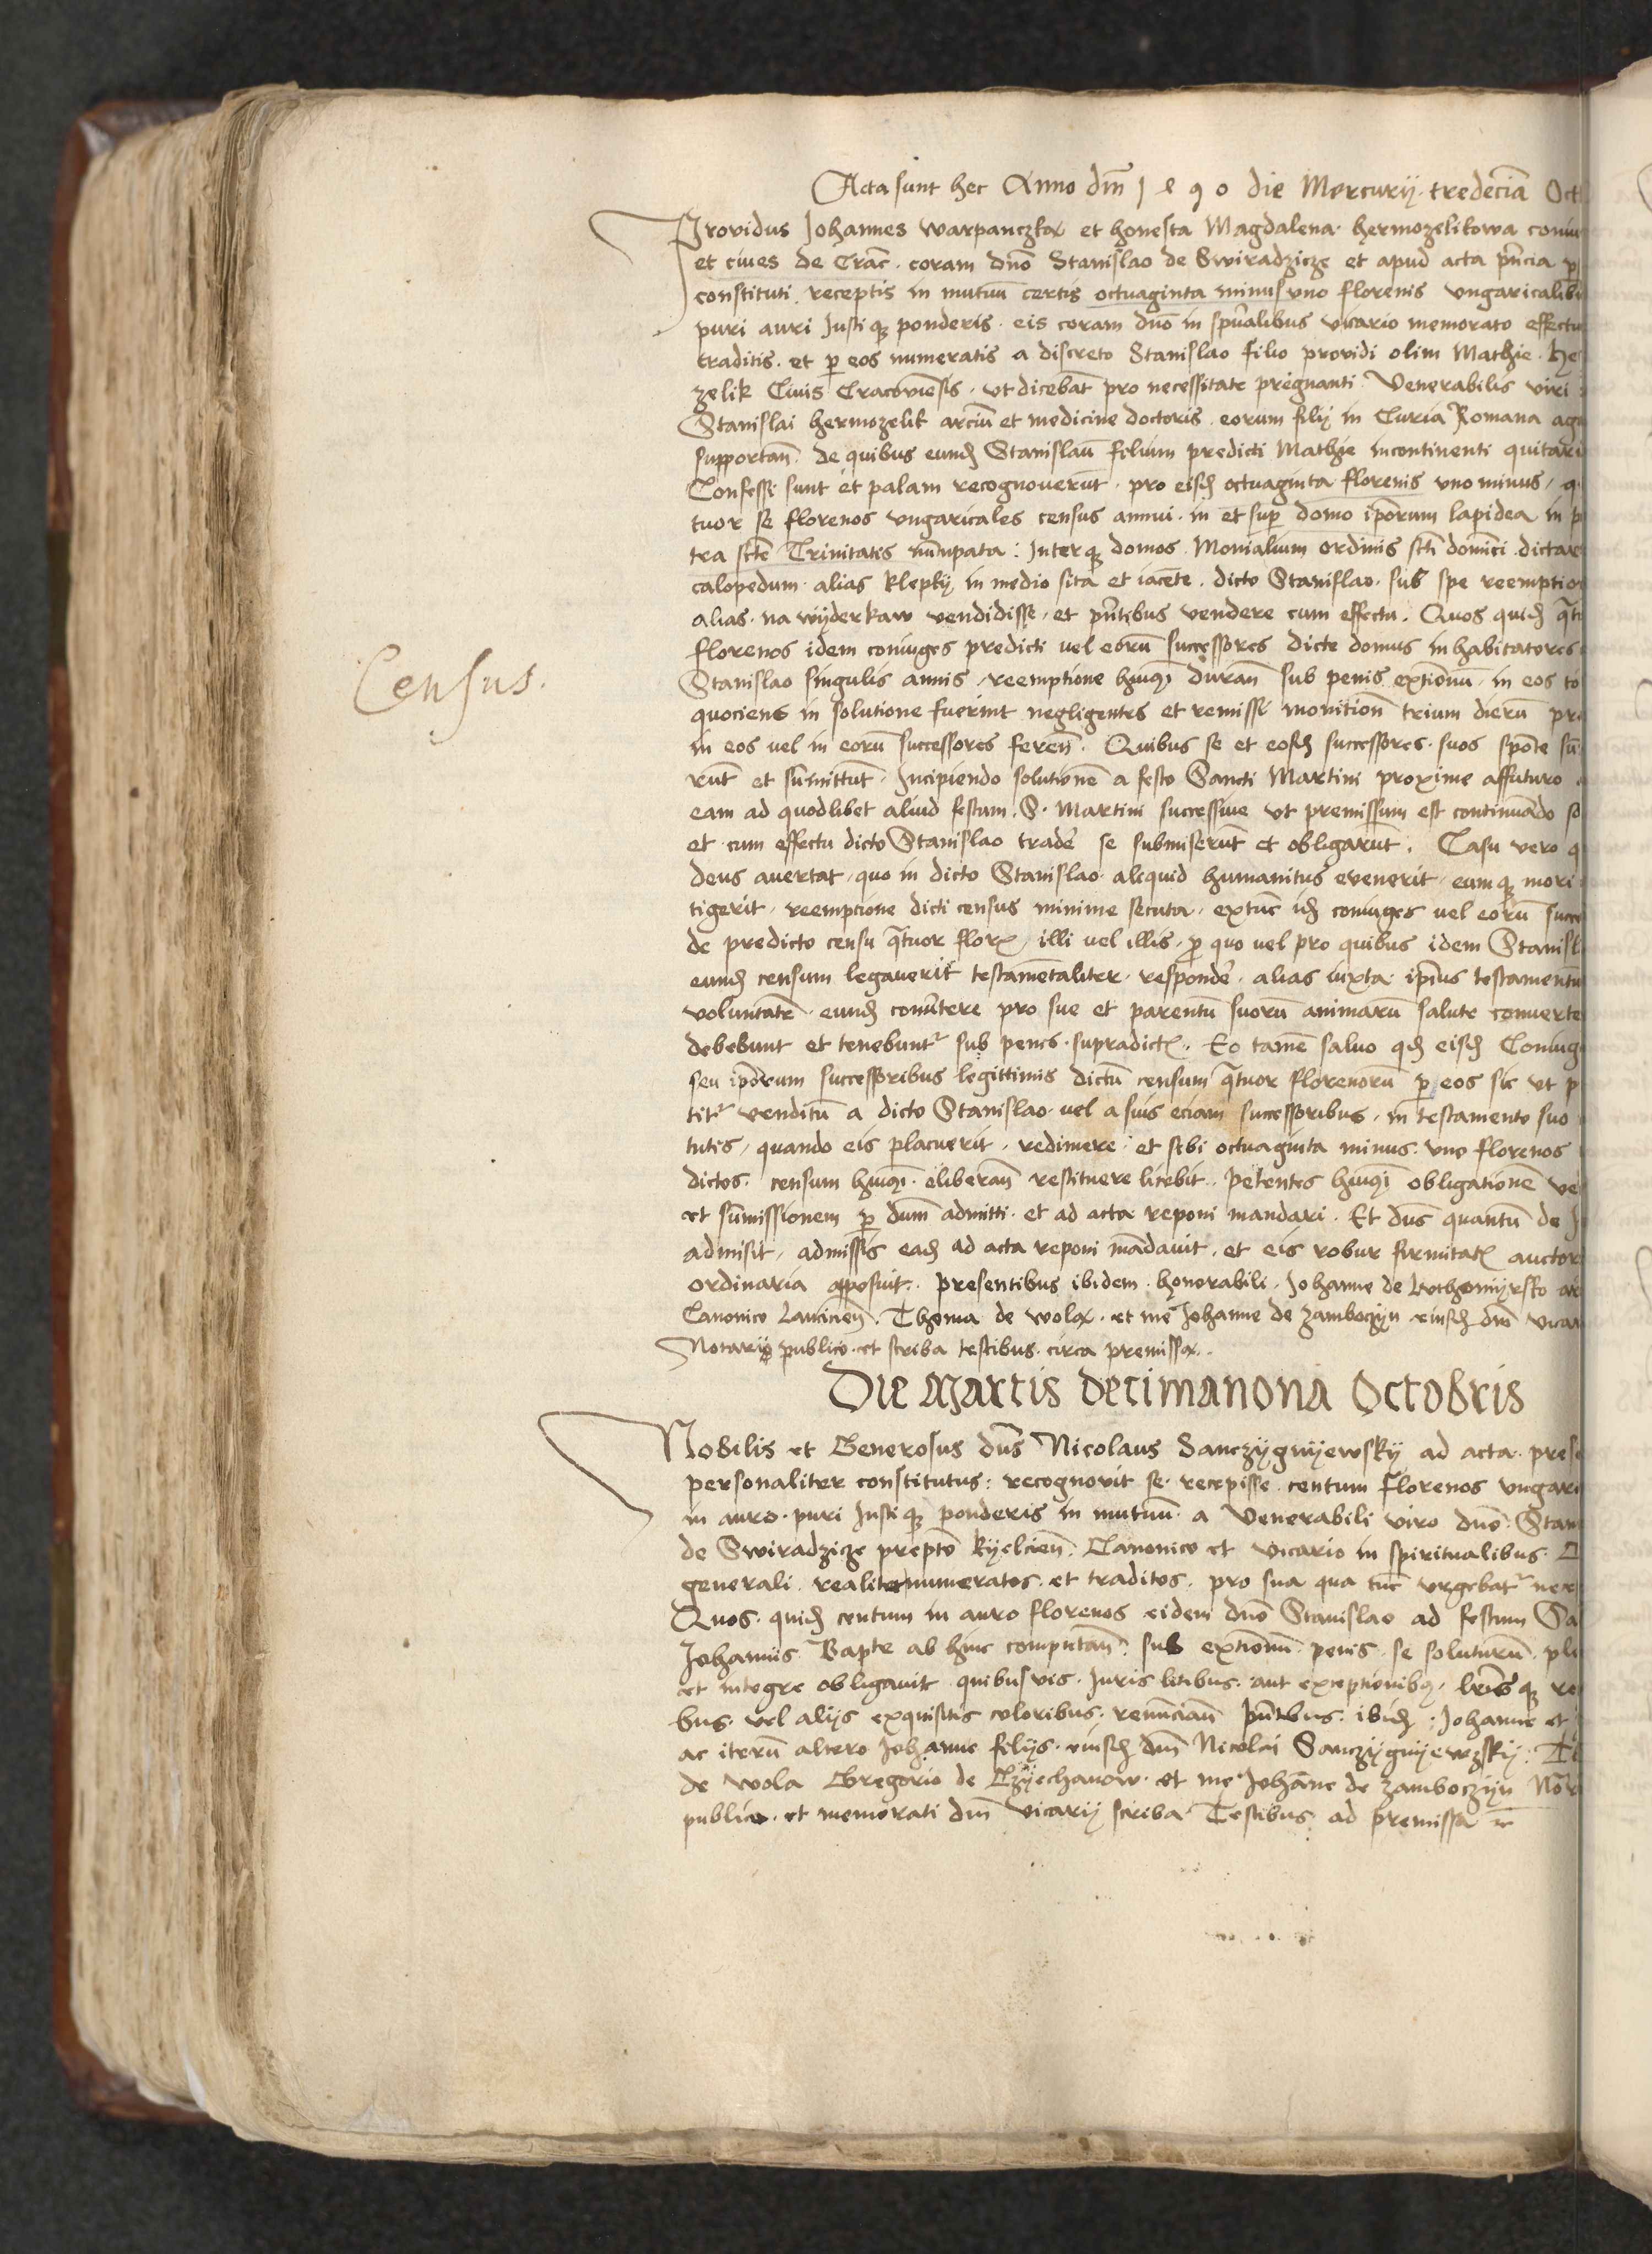 Acta sunt hec Anno dm̄ 1 4 9 0 die Mercurij tredecīa Oct
Providus Johannes warpanczka et honesta Magdalena hermozelikowa coniu
et ciues de Crac̄. coram dn̄o Stanislao de Swiradzicze et apud acta pn̄cia p
constituti receptis in mutuū certis octuaginta minus vno florenis vngaricalib
puri auri Justi qȝ ponderis. eis coram dn̄o in spūalibus vicario memorato effectu
traditis. et p eos numeratis a discreto Stanislao filio providi olim Mathie. He
zelik Ciuis Cracoviēsis. vt dicebāt pro necessitate pregnanti Venerabilis viri
Stanislai hermozelik arciū et medicine doctoris eorum filij in Curia Romana age
supportan̄. de quibus eundȝ Stanislaū filium predicti Mathie incontinenti quitari
Confessi sunt et palam recognouerūt. pro eisdȝ octuaginta florenis vno minus, q
tuor se florenos vngaricales census annui. in et sup domo ip̄orum lapidea in p
tea sc̄te Trinitatis nūcupata: Inter qȝ domos Monialium ordinis sc̄ti domīci dictar
calopedum alias klepky in medio sita et iacēte. dicto Stanislao. sub spe reemptio
alias. na wyderkaw vendidisse. et pn̄tibus vendere cum effectu. Quos quidȝ qt
florenos idem coniuges predicti uel eorū successores dicte domus inhabitatores
Stanislao singulis annis reemptione hmōi duran̄ sub penis extīonū in eos to
quociens in solutione fuerint negligentes et remissi monition̄ trium dierū pre
in eos uel in eorū successores feren̄. Quibus se et eosdȝ successores suos spōte su
rūt et sūmittūt. Incipiendo solutionē a festo Sancti Martini proxime affuturo
eam ad quodlibet aliud festum S. Martini successiue vt premissum est continuādo so
et cum effectu dicto Stanislao trader̄ se submiserūt et obligarūt. Casu vero q
deus auertat, quo in dicto Stanislao aliquid humanitus evenerit, eum qȝ mori
tigerit, reempcione dicti census minime secuta, extūc ijdȝ coniuges uel eorū succe
de predicto censu qtuor flor̄, illi uel illis, p quo uel pro quibus idem Stanisl
eundȝ censum legauerit testamētaliter. responder̄. alias iuxta ip̄ius testamentu
voluntatē eundȝ conūtere pro sue et parentū suorū animarū salute conuerte
debebunt et tenebunt sub penis supradict̄. Eo tamē saluo qdȝ eisdȝ Coniug
seu ip̄orum successoribus legittimis dictū censum qtuor florenorū p eos sic vt p
tit venditū a dicto Stanislao. uel a suis eciam successoribus. in testamento suo
tutis, quando eis placuerit. redimere et sibi octuaginta minus vno florenos
dictos. censum hmōi eliberan̄ restituere licebit. Petentes hmōi obligationē ve
et sūmissionem p dum̄ admitti. et ad acta reponi mandari. Et dūs quantū de J
admisit, admissis eadȝ ad acta reponi mādauit. et eis robur firmitat̄ auctor
ordinaria apposuit. presentibus ibidem honorabili Johanne de ar
Canonico Lancicien̄. Thoma de wola. et me Johanne de zamboczyn eiusdȝ dm̄ vicar
Notario publico et scriba testibus circa premissa.
Census.
Die Martis decimanona Octobris
Nobilis et Generosus dūs Nicolaus Sanczygnyewsky ad acta prese
personaliter constitutus: recognovit se recepisse centum florenos vngari
in auro puri Justi qȝ ponderis in mutuū a Venerabili viro dn̄o Stan
de Swiradzicze prepto kyelcien̄. Canonico et vicario in spiritualibus C
generali realiter numeratos et traditos. pro sua qua tūc vrgebat nec
Quos quidȝ centum in auro florenos eidem dn̄o Stanislao ad festum Sa
Johannis Bapte ab hinc computan̄. sub extīonū penis se soluturū ple
et integre obligauit quibusvis Juris litibus aut exceptionibȝ. qȝ re
bus. vel alijs exquisitis coloribus. renūcian̄ pn̄tibus ibidȝ Johanne et
ac iterū altero Johanne filijs eiusdȝ dm̄ Nicolai Sanczygnyewsky. T
de wola Gregorio de Czyechanow. et me Johāne de zamboczyn Not
publico. et memorati dm̄ vicarij scriba Testibus ad premissa